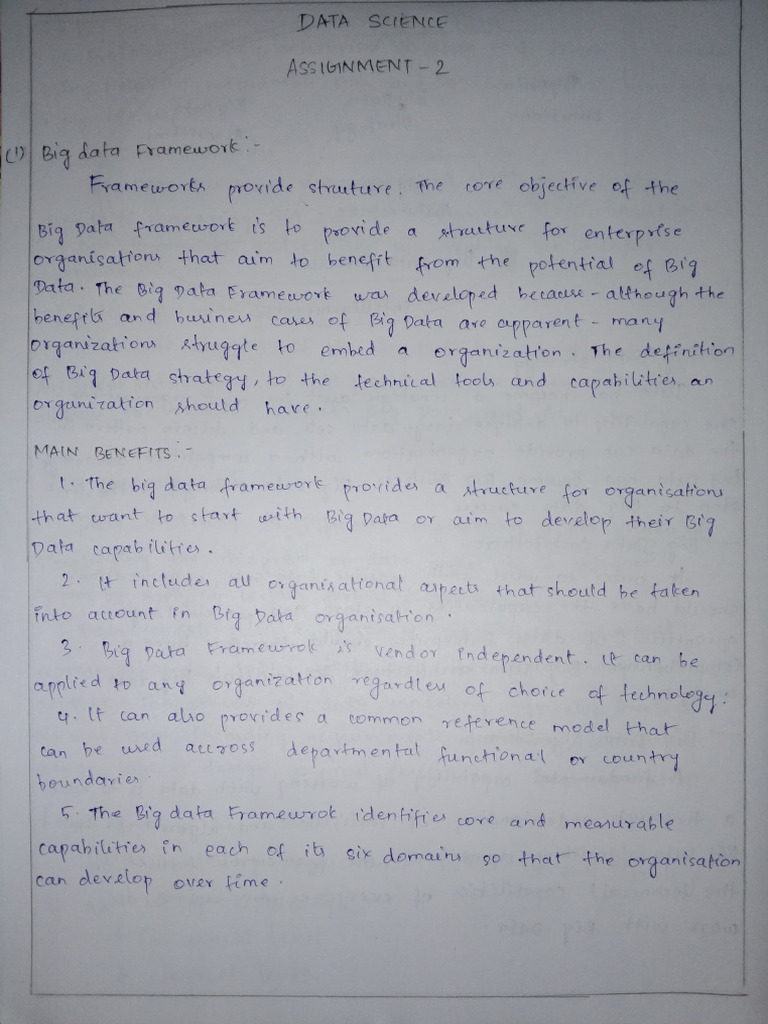 DATA SCIENCE
ASSIGNMENT - 2
(1) Big data Framework:-
Frameworks provide struture. The core objective of the
Big Data framework is to provide a structure for enterprise
organisations that aim to benefit from the potential of Big
Data. The Big Data Framework was developed because - although the
benefits and business cases of Big Data are apparent - many
organizations struggle to embed a organization. The definition
of Big Data strategy, to the technical tools and capabilities an
organization should have.
MAIN BENEFITS:-
1. The big data framework provides a structure for organisations
that want to start with Big Data or aim to develop their Big
Data capabilities.
2. It includes all organisational aspects that should be taken
into account in Big Data organisation.
3. Big Data Framewrok is vendor independent. It can be
applied to any organization regardless of choice of technology.
4. It can also provides a common reference model that
can be used accross departmental functional or country
boundaries.
5. The Big data Framewrok identifies core and measurable
capabilities in each of its six domains so that the organisation
can develop over time.